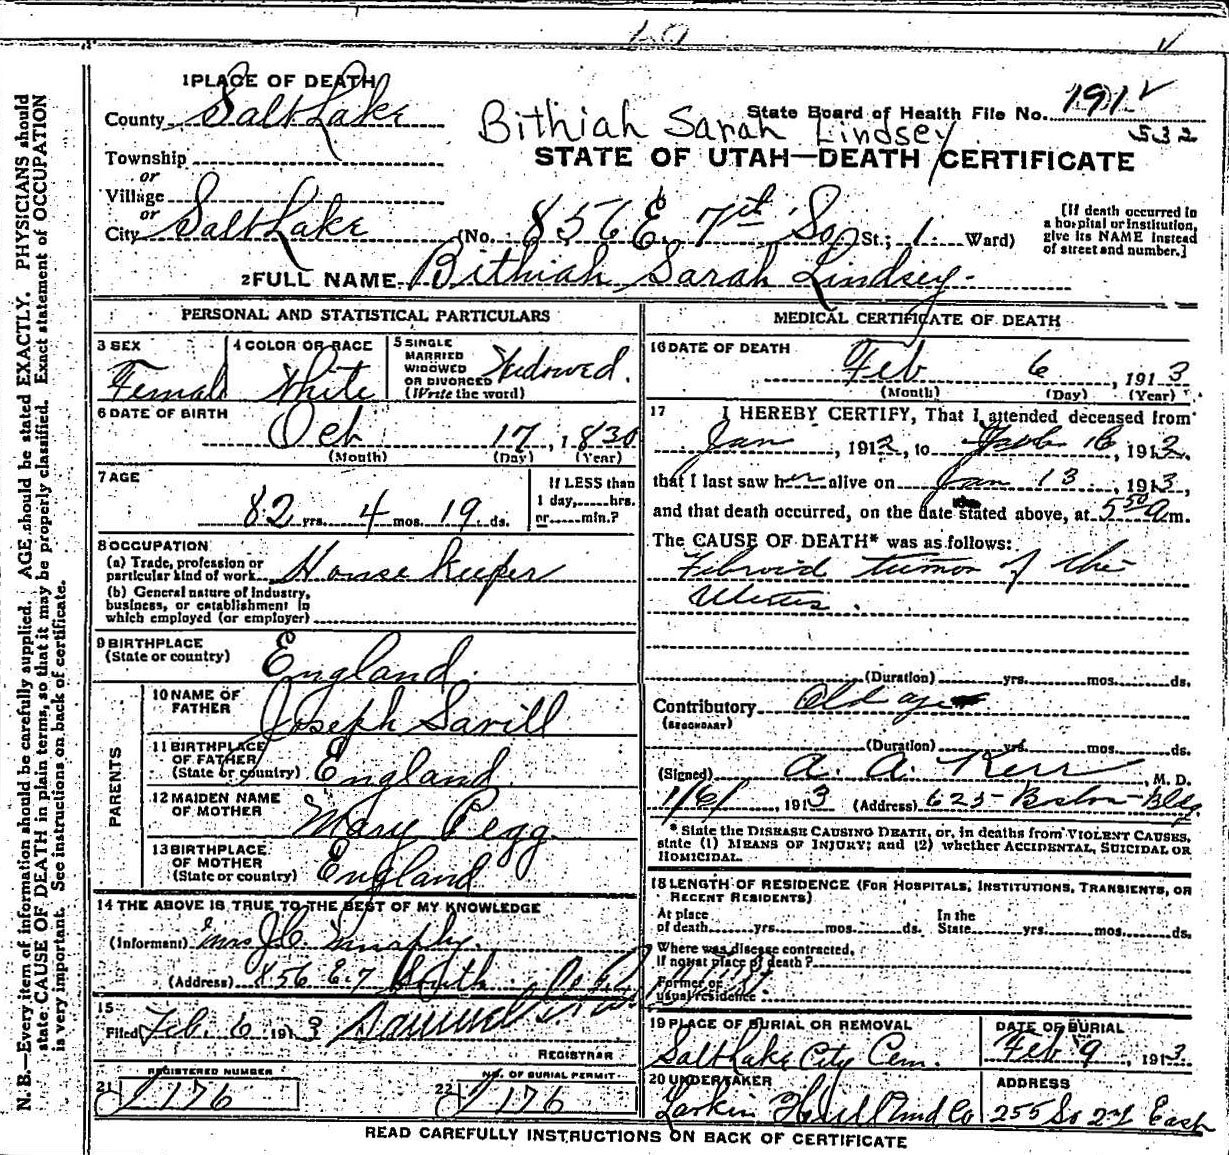 1 PLACE OF DEATH
County Salt Lake
State Board of Health File No. 191
532
Bithiah Sarah Lindsey
Township
or
STATE OF UTAH—DEATH CERTIFICATE
Village
or
City Salt Lake (No. 856 E. 7th So. St.; 1 Ward)
[If death occurred in
a hospital or institution,
give its NAME instead
of street and number.]
2 FULL NAME Bithiah Sarah Lindsey
PERSONAL AND STATISTICAL PARTICULARS
3 SEX
Female
4 COLOR OR RACE
White
5 SINGLE
MARRIED
WIDOWED
OR DIVORCED
(Write the word)
Widowed.
6 DATE OF BIRTH
Oct 17, 1830
(Month) (Day) (Year)
7 AGE
82 yrs. 4 mos. 19 ds.
If LESS than
1 day, hrs.
or min.?
8 OCCUPATION
(a) Trade, profession or
particular kind of work House keeper
(b) General nature of industry,
business, or establishment in
which employed (or employer)
9 BIRTHPLACE
(State or country) England
PARENTS
10 NAME OF
FATHER Joseph Savill
11 BIRTHPLACE
OF FATHER
(State or country) England
12 MAIDEN NAME
OF MOTHER Mary Pegg
13 BIRTHPLACE
OF MOTHER
(State or country) England
14 THE ABOVE IS TRUE TO THE BEST OF MY KNOWLEDGE
(Informant) Mrs J.C.
(Address) 856 E. 7 South
15
Filed Feb. 6 1913 Samuel
REGISTRAR
REGISTERED NUMBER
21 J 176
NO. OF BURIAL PERMIT
22 J 176
MEDICAL CERTIFICATE OF DEATH
16 DATE OF DEATH
Feb 6, 1913
(Month) (Day) (Year)
17 I HEREBY CERTIFY, That I attended deceased from
Jan, 1912, to 16, 1912.
that I last saw her alive on Jan 13, 1913,
and that death occurred, on the date stated above, at 5 50 a m.
The CAUSE OF DEATH* was as follows:
Fibroid tumor of the
Uterus.
(Duration) yrs. mos. ds.
Contributory Old age
(SECONDARY)
(Duration) yrs. mos. ds.
(Signed) A. A. Kerr, M. D.
1/6/, 1913 (Address) 625 Boston Bldg
* State the DISEASE CAUSING DEATH, or, in deaths from VIOLENT CAUSES,
state (1) MEANS OF INJURY; and (2) whether ACCIDENTAL, SUICIDAL OR
HOMICIDAL.
18 LENGTH OF RESIDENCE (FOR HOSPITALS, INSTITUTIONS, TRANSIENTS, OR
RECENT RESIDENTS)
At place
of death yrs. mos. ds.
In the
State yrs. mos. ds.
Where was disease contracted,
if not at place of death?
Former or
usual residence
19 PLACE OF BURIAL OR REMOVAL
Salt Lake City Cem.
DATE OF BURIAL
Feb 9, 1913
20 UNDERTAKER
Larkin Hull Und Co
ADDRESS
255 So 2d East
READ CAREFULLY INSTRUCTIONS ON BACK OF CERTIFICATE
N. B.—Every item of information should be carefully supplied. AGE should be stated EXACTLY. PHYSICIANS should
state CAUSE OF DEATH in plain terms, so that it may be properly classified. Exact statement of OCCUPATION
is very important. See instructions on back of certificate.